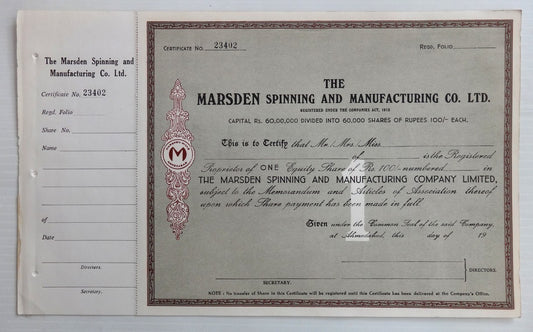 The Marsden Spinning and
Manufacturing Co. Ltd.
Certificate No. 23402
Regd. Folio
Share No.
Name
of
Date
Directors.
Secretary.
CERTIFICATE NO. 23402
REGD. FOLIO
THE
MARSDEN SPINNING AND MANUFACTURING CO. LTD.
REGISTERED UNDER THE COMPANIES ACT, 1913
CAPITAL RS. 60,00,000 DIVIDED INTO 60,000 SHARES OF RUPEES 100/- EACH.
This is to Certify that Mr./Mrs./Miss
of is the Registered
Proprietor of ONE Equity Share of Rs. 100/- numbered in
THE MARSDEN SPINNING AND MANUFACTURING COMPANY LIMITED,
subject to the Memorandum and Articles of Association thereof
upon which Share payment has been made in full.
Given under the Common Seal of the said Company,
at Ahmedabad, this day of 19
DIRECTORS.
SECRETARY.
NOTE : No transfer of Share in this Certificate will be registered until this Certificate has been delivered at the Company's Office.
M
1